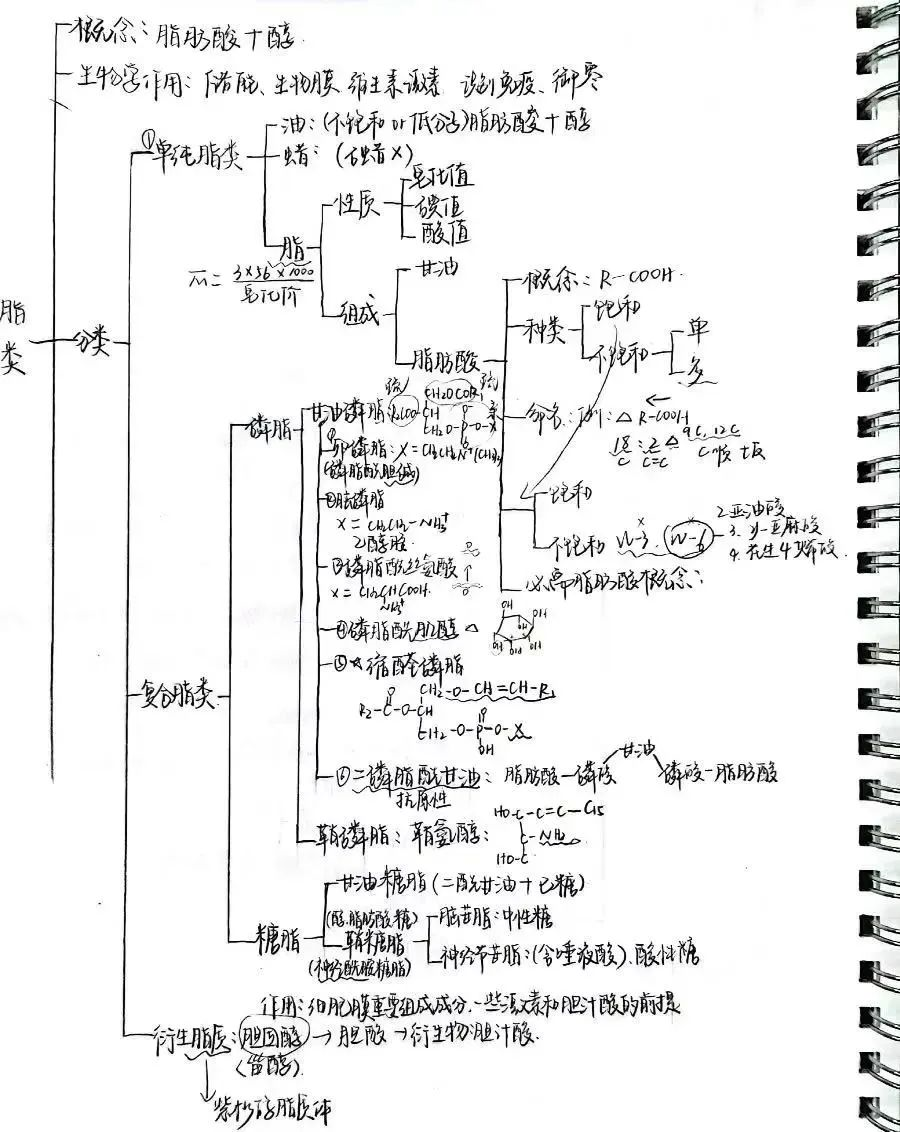 脂类
概念：脂肪酸＋醇
生物学作用：储能、生物膜、维生素激素 识别免疫、御寒
分类
①单纯脂类
油：(不饱和 or 低分子)脂肪酸＋醇
蜡：(石蜡×)
脂
性质
皂化值
碘值
酸值
M̅= 3×56×1000 / 皂化价
组成
甘油
脂肪酸
概念：R-COOH.
种类
饱和
不饱和
单
多
命名：例：△ R-COOH
18:2 △ 9C,12C
C C=C C顺
饱和
不饱和 W-3. W-6
2.亚油酸
3.γ-亚麻酸
4.花生四烯酸.
必需脂肪酸概念：
复合脂类
磷脂
甘油磷脂：R2COO-CH
CH2OCOR1
CH2O-P-O-X
①卵磷脂：X=CH2CH2N+(CH3)3
(磷脂酰胆碱)
②脑磷脂
X=CH2CH2-NH3+
乙醇胺
③磷脂酰丝氨酸
X=CH2CHCOOH.
NH3+
④磷脂酰肌醇 △
OH OH OH OH OH
⑤☆缩醛磷脂
CH2-O-CH=CH-R1
R2-C-O-CH
CH2-O-P-O-X
OH
⑥二磷脂酰甘油：脂肪酸-磷酸 甘油 磷酸-脂肪酸
抗原性
鞘磷脂：鞘氨醇：
HO-C-C=C-C15
C-NH2
HO-C
糖脂
甘油糖脂(二酰甘油＋己糖)
(醇.脂肪酸.糖)
鞘糖脂
(神经酰胺糖脂)
脑苷脂：中性糖
神经节苷脂：(含唾液酸).酸性糖
作用：细胞膜重要组成成分.一些激素和胆汁酸的前提
衍生脂质：胆固醇→胆酸→衍生物：胆汁酸.
(甾醇).
紫杉醇脂质体